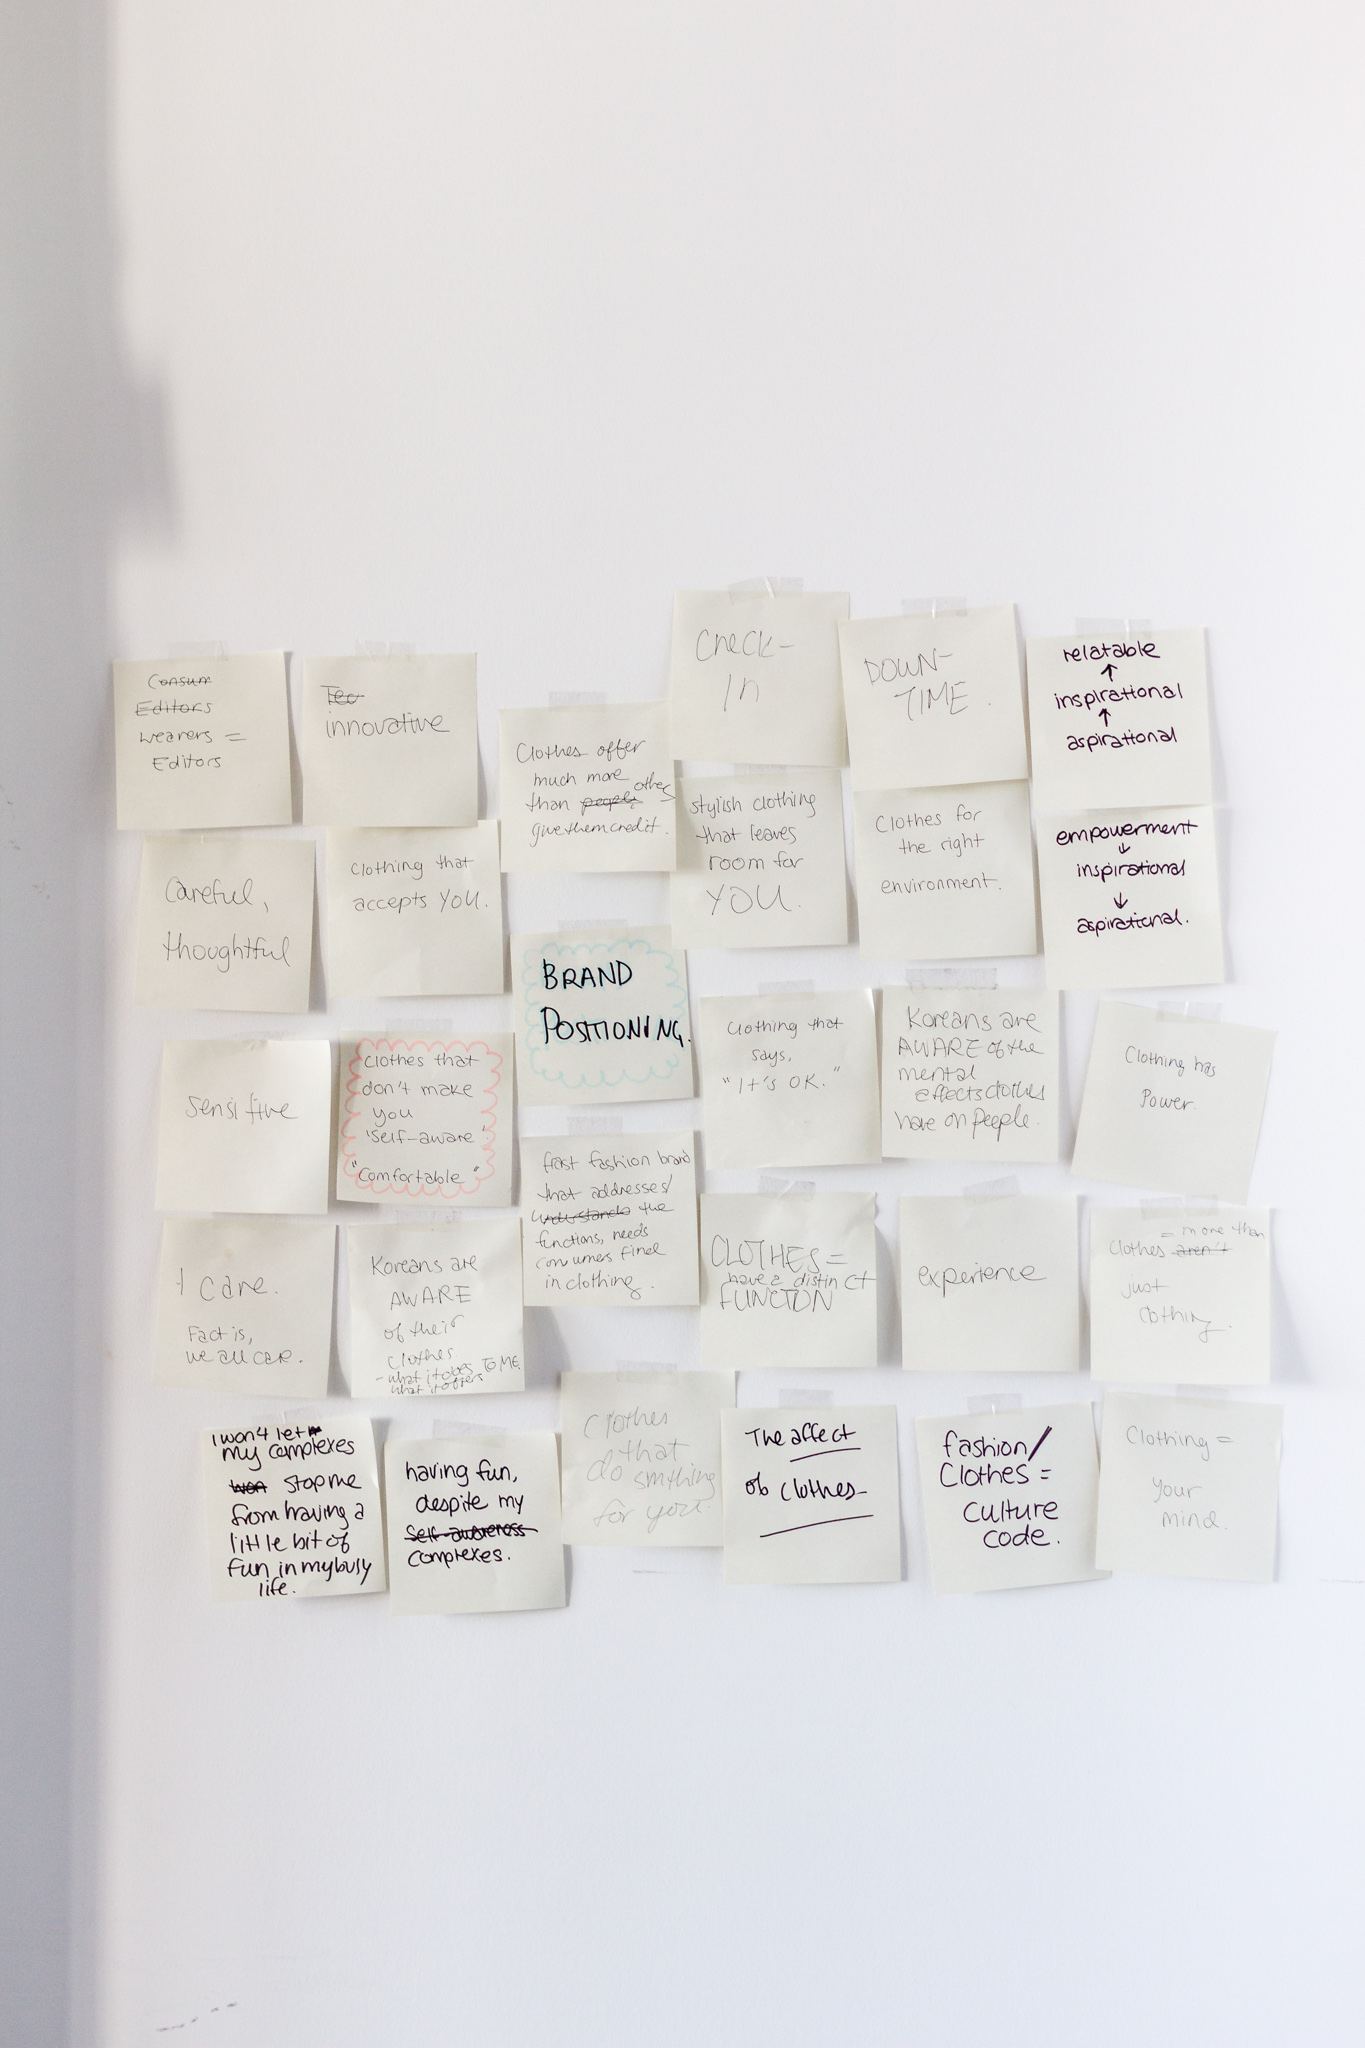 Consum
Editors
wearers =
Editors
Tec
innovative
Clothes offer
much more
than people others
give them credit.
Check-
In
DOWN-
TIME.
relatable
↑
inspirational
↑
aspirational
Careful,
thoughtful
Clothing that
accepts YOU.
stylish clothing
that leaves
room for
YOU.
Clothes for
the right
environment.
empowerment
↓
inspirational
↓
aspirational.
BRAND
POSITIONING.
Sensitive
Clothes that
don't make
you
'self-aware'
"Comfortable"
Clothing that
says,
"It's OK."
Koreans are
AWARE of the
mental
effects clothes
have on people.
Clothing has
Power.
fast fashion brand
that addresses/
understands the
functions, needs
consumers find
in clothing.
I care.
Fact is,
we all care.
Koreans are
AWARE
of their
Clothes
- what it does TO ME.
what it offers
CLOTHES =
have a distinct
FUNCTION
experience
= more than
Clothes aren't
just
clothing.
I won't let
my complexes
won stop me
from having a
little bit of
fun in my busy
life.
having fun,
despite my
self-awareness
complexes.
Clothes
that
do smthing
for you.
The affect
of clothes
fashion/
Clothes =
culture
code.
Clothing =
your
mind.